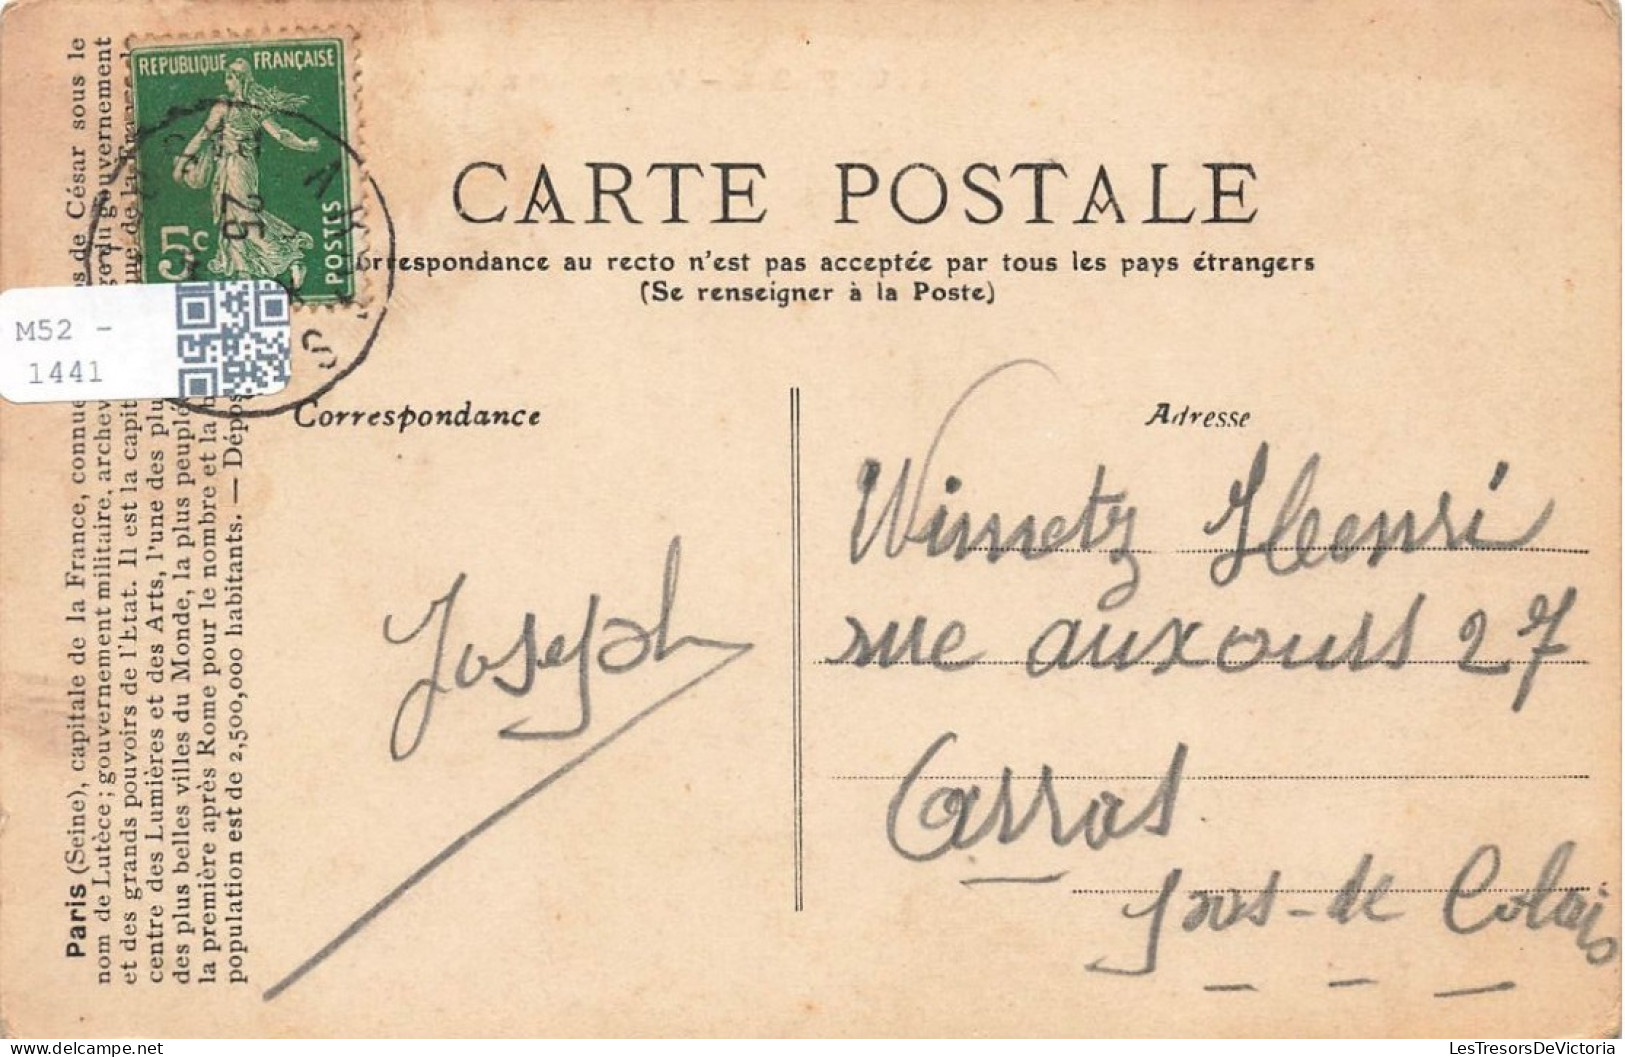 REPUBLIQUE FRANÇAISE
5c POSTES
25
M52 -
1441
CARTE POSTALE
orrespondance au recto n'est pas acceptée par tous les pays étrangers
(Se renseigner à la Poste)
Correspondance
Adresse
Joseph
Henri
rue aux ours 27
Arras
Pas-de Calais
Paris (Seine), capitale de la France, connue de César sous le
nom de Lutèce; gouvernement militaire, archev du gouvernement
et des grands pouvoirs de l'Etat. Il est la capit que de la France
centre des Lumières et des Arts, l'une des plu
des plus belles villes du Monde, la plus peuplé
la première après Rome pour le nombre et la b
population est de 2,500,000 habitants. — Dépos
LesTresorsDeVictoria
https://www.delcampe.net